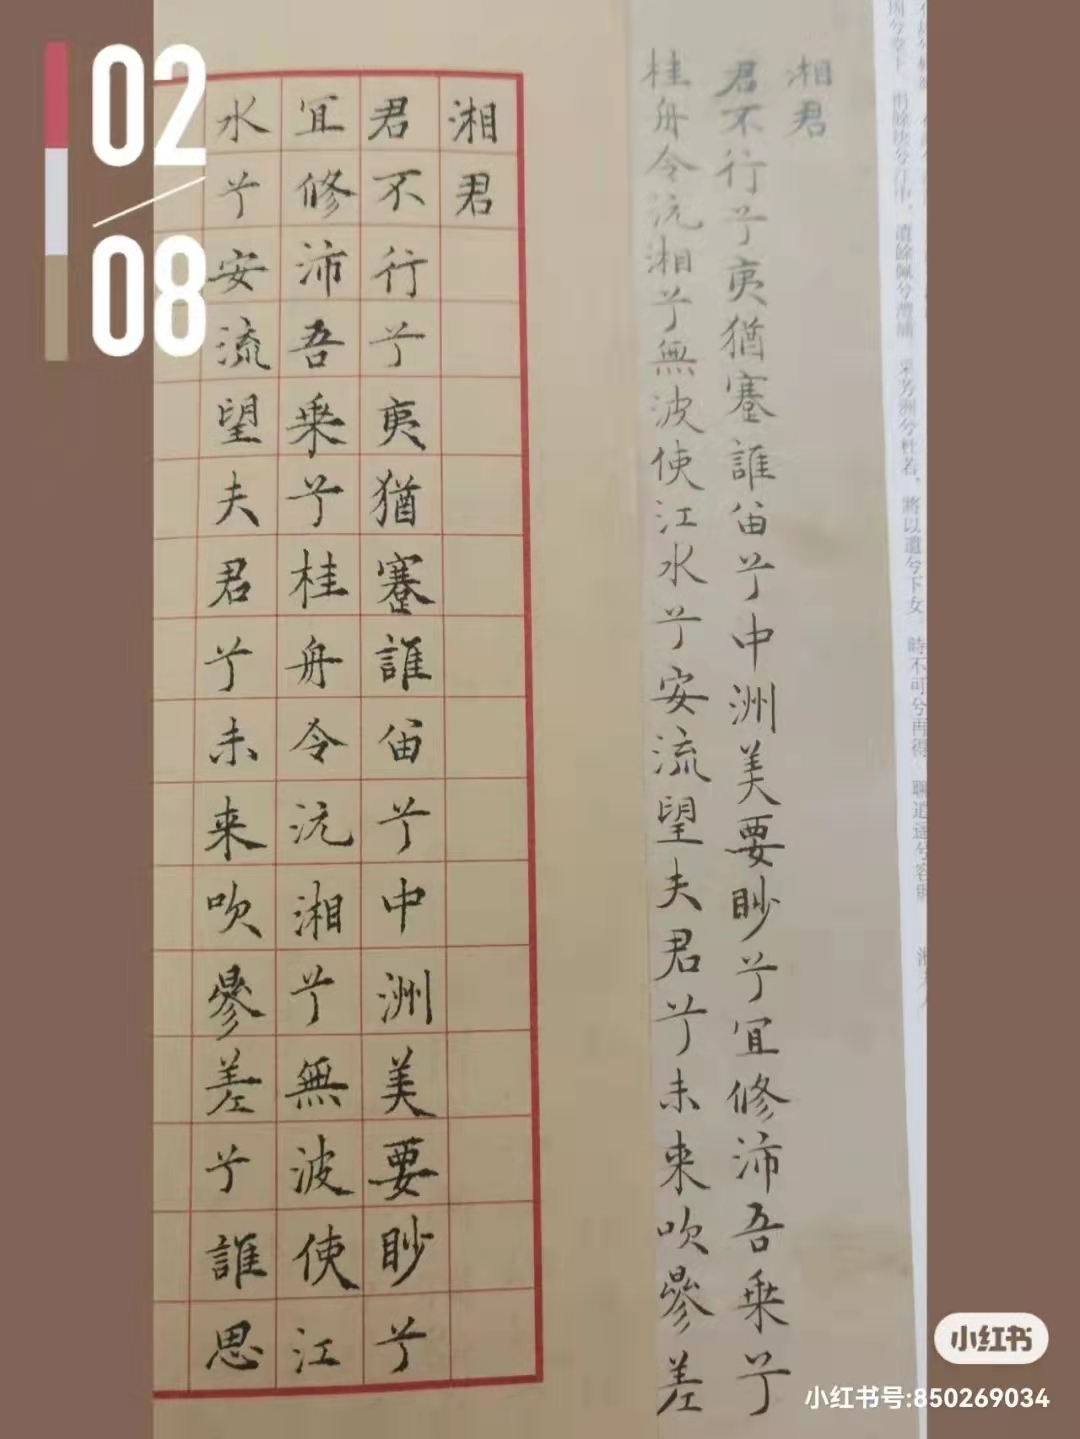 02
08
捐餘玦兮江中，遺餘佩兮澧浦，采芳洲兮杜若，將以遺兮下女 時不可兮再得 聊逍遥兮容與
湘君
君不行兮夷猶蹇誰留兮中洲美要眇兮冝修沛吾乗兮
桂舟令沅湘兮無波使江水兮安流望夫君兮未来吹參差
湘君
君不行兮夷猶蹇誰留兮中洲美要眇兮
冝修沛吾乗兮桂舟令沅湘兮無波使江
水兮安流望夫君兮未来吹參差兮誰思
小红书
小红书号:850269034